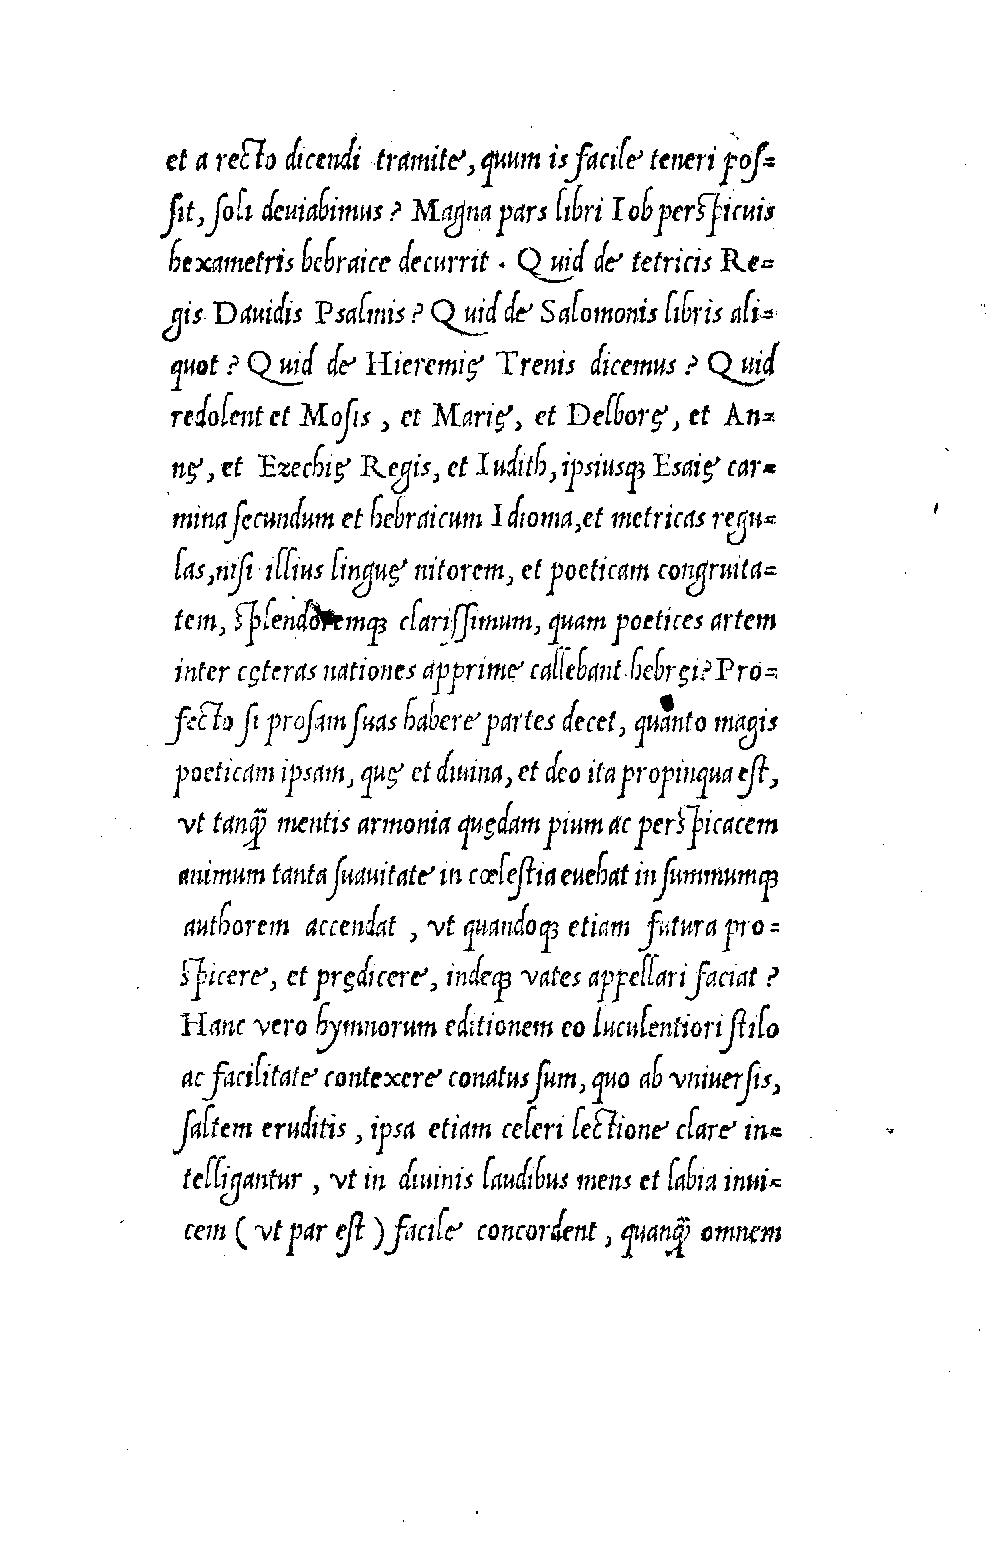 et a recto dicendi tramite, quum is facile teneri poſ=
ſit, ſoli deuiabimus ? Magna pars libri Iob perſpicuis
hexametris hebraice decurrit . Quid de tetricis Re=
gis Dauidis Psalmis ? Quid de Salomonis libris ali=
quot ? Quid de Hieremię Trenis dicemus ? Quid
redolent et Moſis , et Marię, et Delborę, et An=
nę, et Ezechię Regis, et Iudith, ipsiusqꝫ Esaię car=
mina ſecundum et hebraicum Idioma,et metricas regu=
las,niſi illius linguę nitorem, et poeticam congruita=
tem, ſplendoremqꝫ clariſſimum, quam poetices artem
inter cęteras nationes apprimę callebant hebręi? Pro=
fecto ſi proſam ſuas habere partes decet, quanto magis
poeticam ipsam, quę et diuina, et deo ita propinqua eſt,
vt tanq̃ mentis armonia quędam pium ac perſpicacem
animum tanta ſuauitate in cœleſtia euehat in ſummumqꝫ
authorem accendat , vt quandoqꝫ etiam futura pro=
ſpicere, et prędicere, indeqꝫ vates appellari faciat ?
Hanc vero hymnorum editionem eo luculentiori ſtilo
ac facilitate contexere conatus ſum, quo ab vniuerſis,
ſaltem eruditis , ipsa etiam celeri lectione clare in=
telligantur , vt in diuinis laudibus mens et labia inui=
cem ( vt par eſt ) facile concordent , quanq̃ omnem